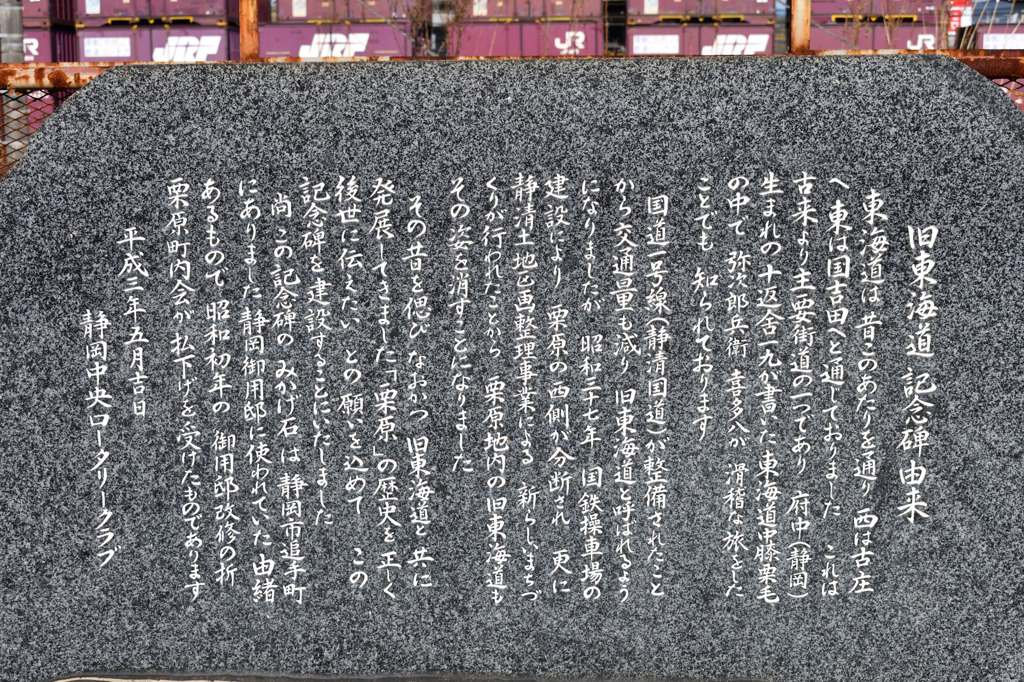 旧東海道 記念碑由来
東海道は 昔このあたりを通り 西は古庄
へ 東は国吉田へと通しておりました これは
古来より主要街道の一つであり 府中(静岡)
生まれの 十返舎一九が書いた 東海道中膝栗毛
の中で 弥次郎兵衛 喜多八が 滑稽な旅をした
ことでも 知られております
国道一号線(静清国道)が整備されたこと
から 交通量も減り 旧東海道と呼ばれるよう
になりましたが 昭和三十七年 国鉄操車場の
建設により 栗原の西側が分断され 更に
静清土地区画整理事業による 新らしいまちづ
くりが行われたことから 栗原地内の旧東海道も
その姿を消すことになりました
その昔を偲び なおかつ 旧東海道と 共に
発展してきました「栗原」の歴史を 正しく
後世に伝えたい との願いを込めて この
記念碑を建設することにいたしました
尚 この記念碑の みかげ石は 静岡市追手町
にありました 静岡御用邸に使われていた 由緒
あるもので 昭和初年の 御用邸改修の折
栗原町内会が払下げを受けたものであります
平成三年五月吉日
静岡中央ロータリークラブ
JRF
JRF
JR
JRF
JR
JR